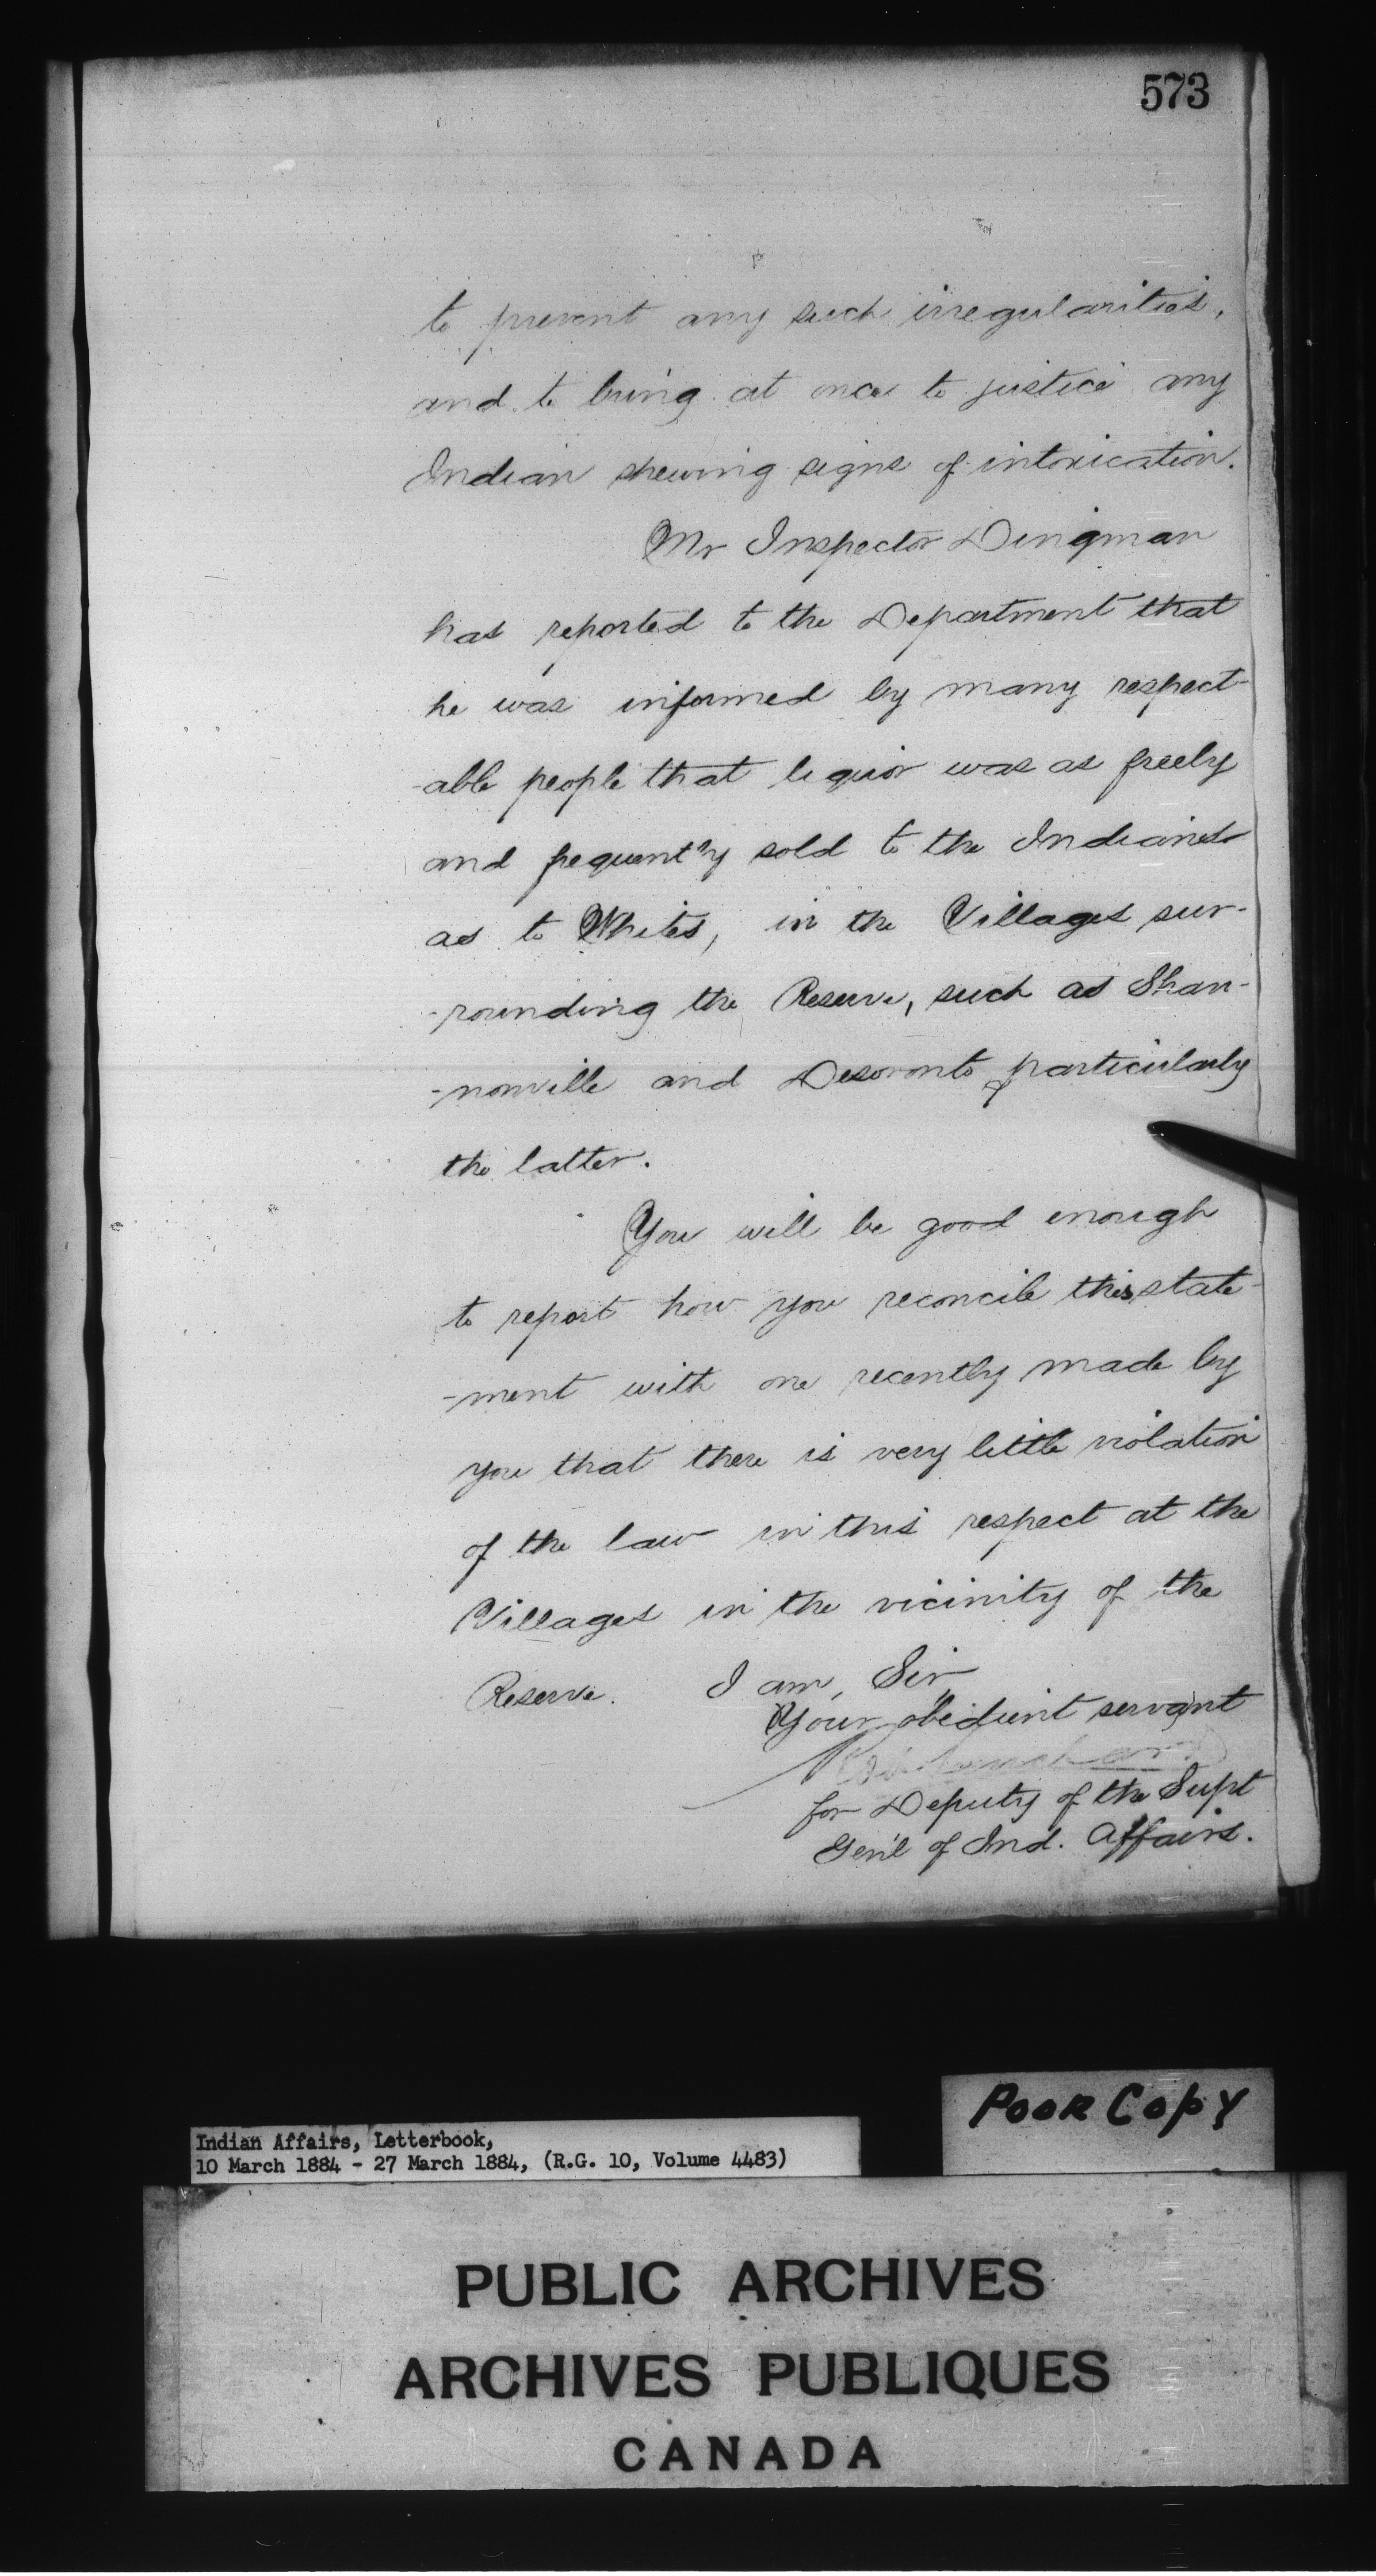 573
to prevent any such irregularities,
and to bring at once to justice any
Indian shewing signs of intoxication.
Mr Inspector Dingman
has reported to the Department that
he was informed by many respect-
-able people that liquor was as freely
and frequently sold to the Indians
as to Whites, in the Villages sur-
-rounding the Reserve, such as Shan-
-nonville and Deseronto & particularly
the latter.
You will be good enough
to report how you reconcile this state-
-ment with one recently made by
you that there is very little violation
of the law in this respect at the
Villages in the vicinity of the
Reserve. I am, Sir
Your obedient servant
for Deputy of the Supt
Gen'l of Ind. Affairs.
Poor Copy
Indian Affairs, Letterbook,
10 March 1884 - 27 March 1884, (R.G. 10, Volume 4483)
PUBLIC ARCHIVES
ARCHIVES PUBLIQUES
CANADA